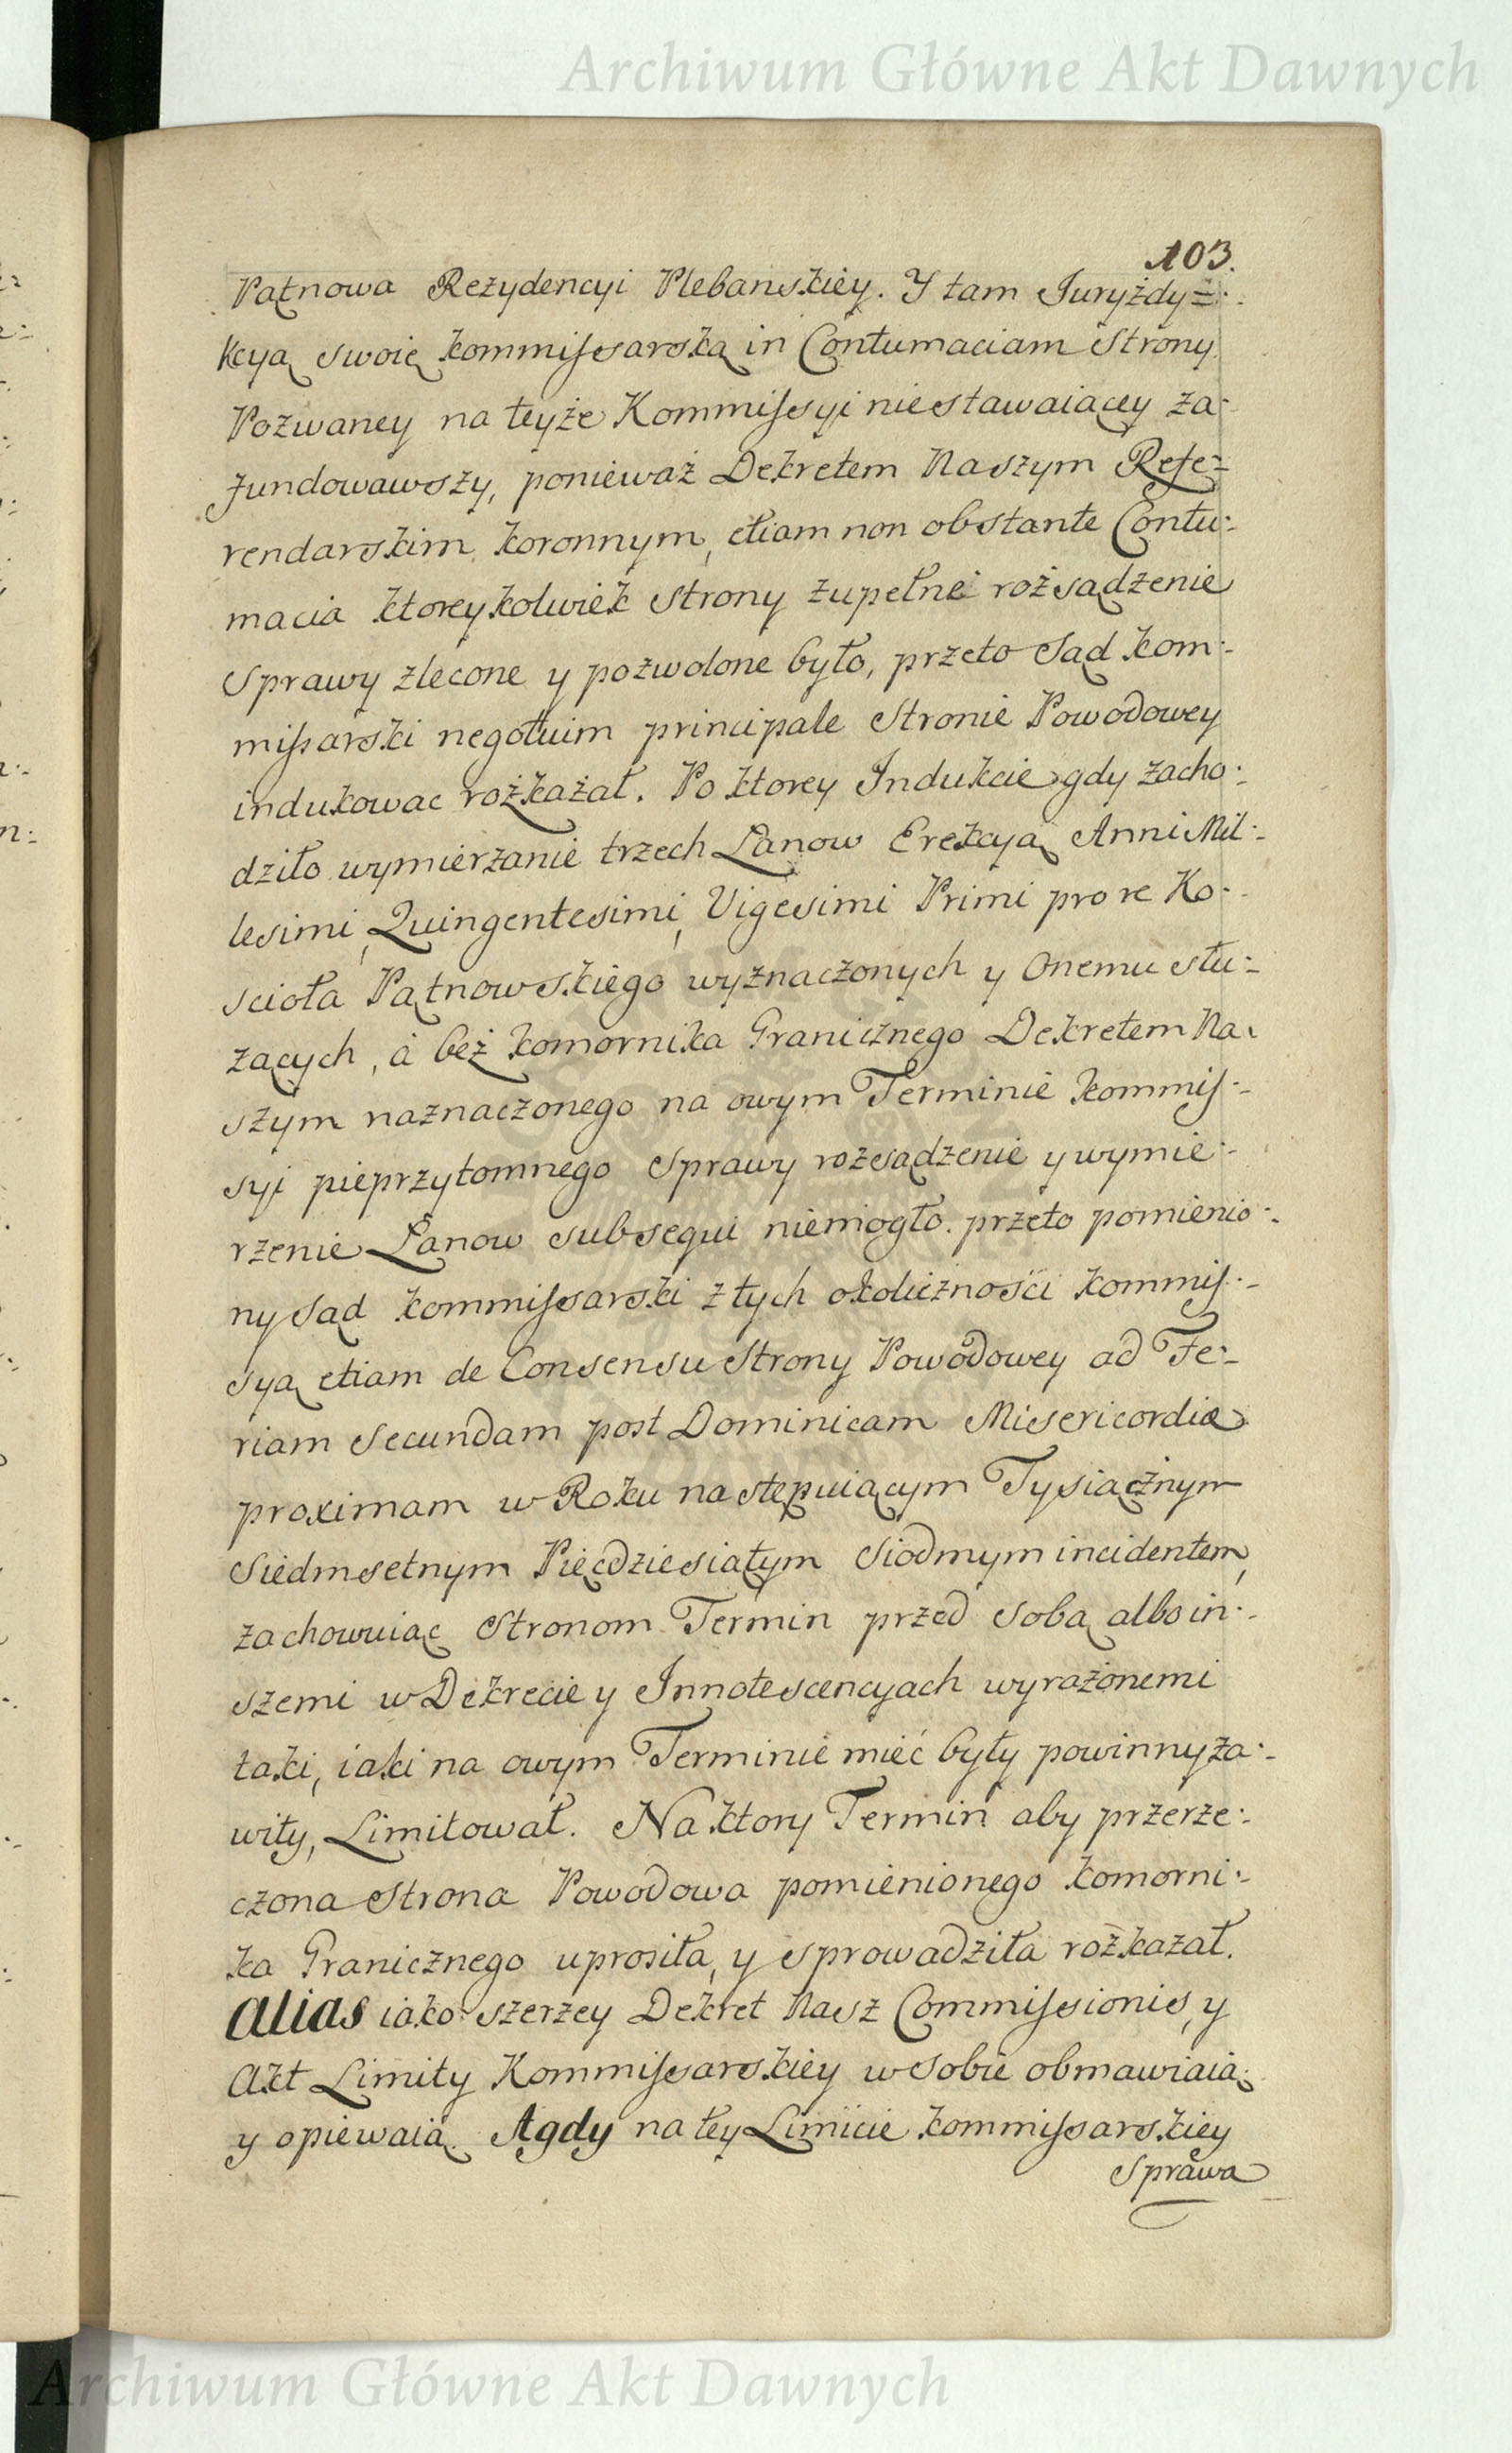 Archiwum Główne Akt Dawnych
103.
Pątnowa Rezydencyi Plebanskiey. Y tam Juryżdy=
kcyą swoię kommissarską in Contumaciam Strony
Pozwaney na teyże Kommissyi niestawaiącey za:
fundowawszy, ponieważ Dekretem Naszym Refe=
rendarskim koronnym, etiam non obstante Contu:
macia ktoreykolwiek Strony zupełne rozsądzenie
Sprawy zlecone y pozwolone było, przeto Sąd kom:
missarski negotium principale Stronie Powodowey
indukowac rozkazał. Po ktorey Indukcie gdy zacho:
dziło wymierzanie trzech Łanow Erekcyą Anni Mil:
lesimi Quingentesimi, Vigesimi Primi pro re Ko:
scioła Pątnowskiego wyznaczonych y onemu słu:
zących, á bez komornika Granicznego Dekretem Na:
szym naznaczonego na owym Terminie kommis:
syi nieprzytomnego Sprawy rozsądzenie y wymie:
rzenie Łanow subsequi niemogło. przeto pomienio:
ny Sąd kommissarski z tych okoliczności kommis:
syą etiam de Consensu Strony Powodowey ad Fe:
riam Secundam post Dominicam Misericordiæ
proximam w Roku następuiącym Tysiącznym
Siedmsetnym Pięcdziesiątym Siodmym incidentem,
zachowuiąc Stronom Termin przed sobą albo in:
szemi w Dekrecie y Innotescencyach wyrażonemi
taki, iaki na owym Terminie mieć były powinny za:
wity, Limitował. Na ktory Termin aby przerze:
czona Strona Powodowa pomienionego komorni:
ka Granicznego uprosiła, y sprowadziła rozkazał.
Alias iako szerzey Dekret Nasz Commissionis, y
Akt Limity Kommissarskiey w sobie obmawiaią
y opiewaią. A gdy na tey Limicie kommissarskiey
Sprawa
Archiwum Główne Akt Dawnych